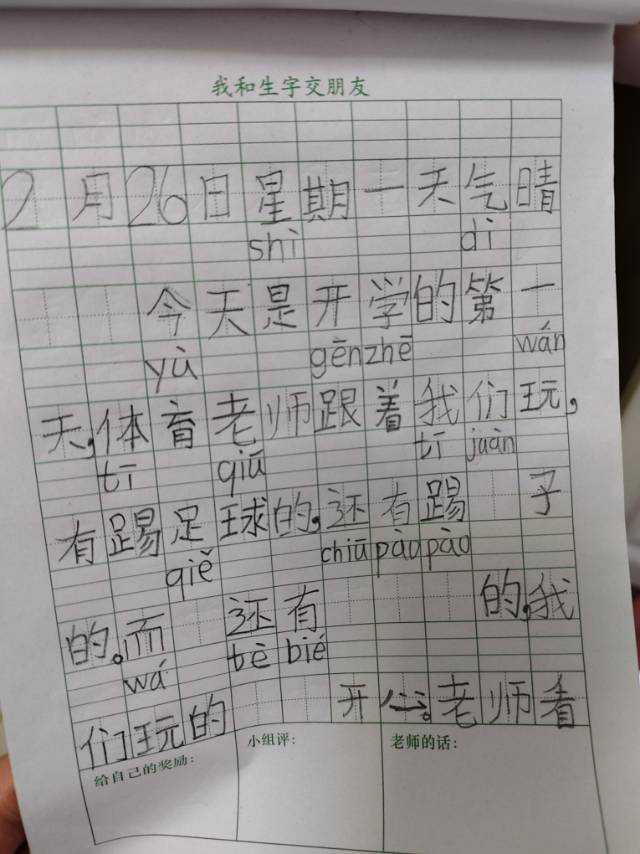 我和生字交朋友
2月26日星期一天气晴
shì dì
今天是开学的第一
yù gēn zhē wán
天,体育老师跟着我们玩,
tī qiū tī juàn
有踢足球的,还有踢 子
qiě chiū pào pào
的。而 还有 的,我
wá tè bié
们玩的 开心。老师看
给自己的奖励:
小组评:
老师的话: